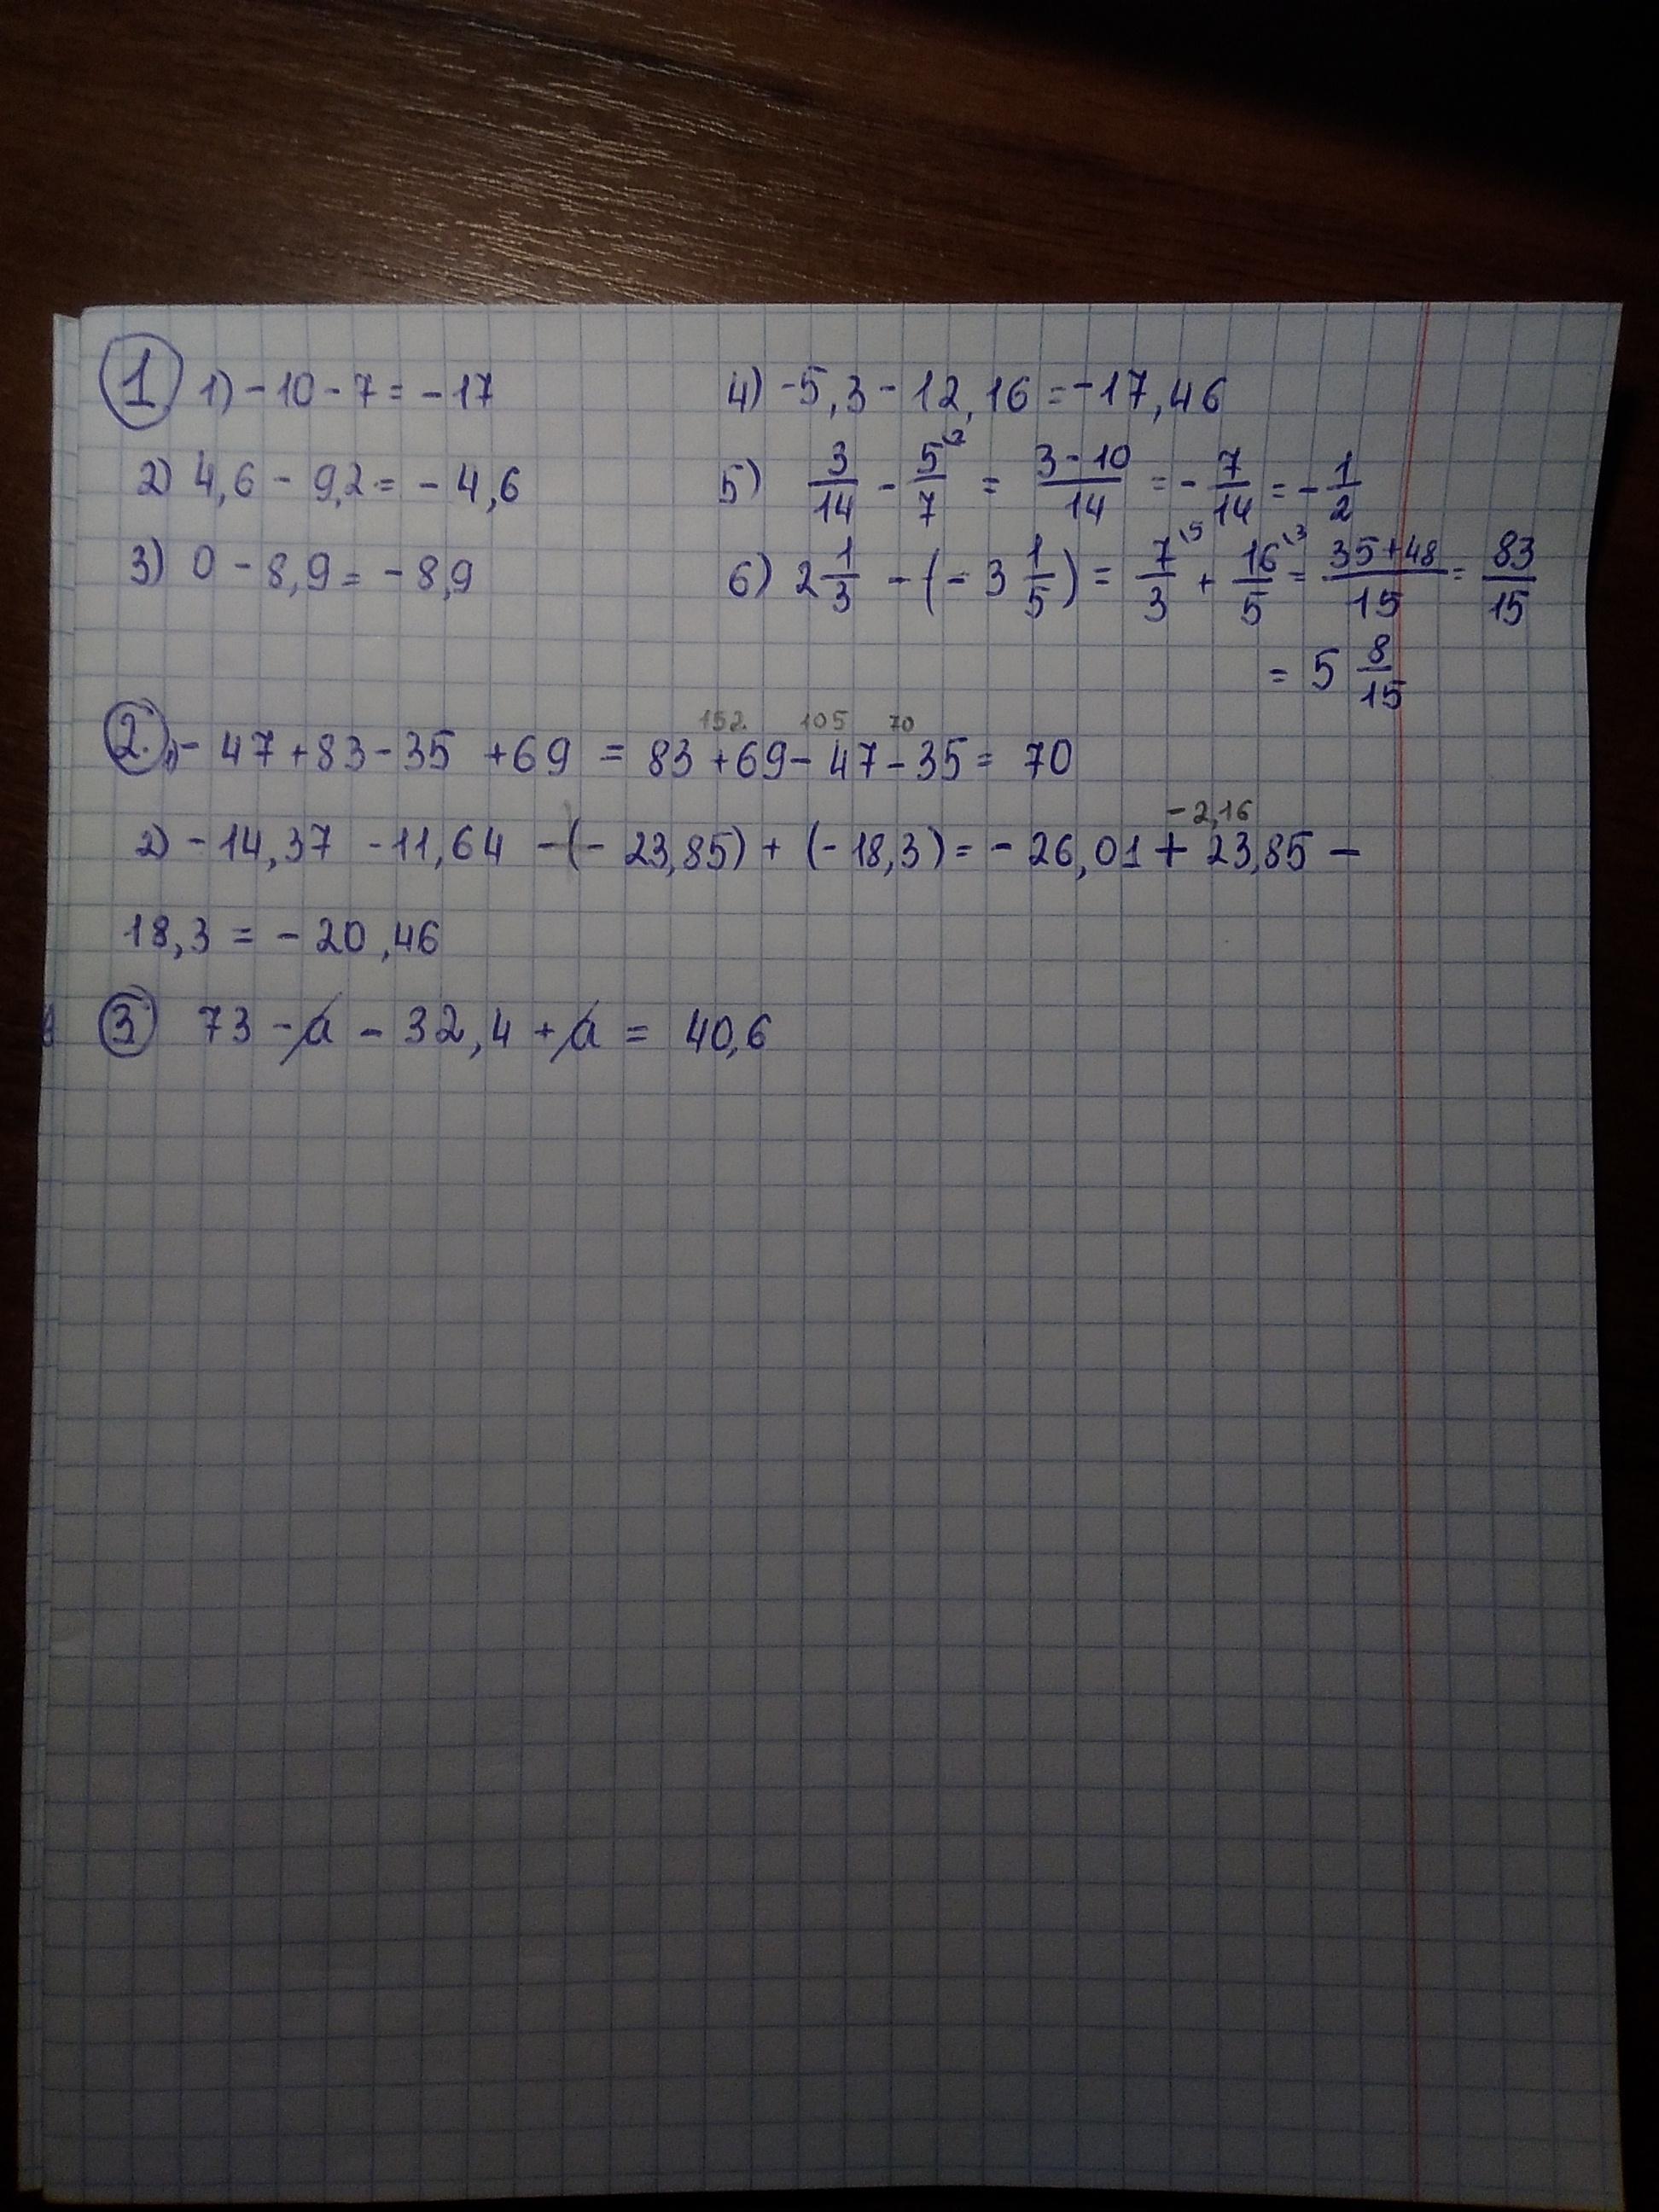 1 1) -10 - 7 = -17 4) -5,3 - 12,16 = -17,46
2) 4,6 - 9,2 = -4,6 5) 3/14 - 5\2/7 = 3-10/14 = -7/14 = -1/2
3) 0 - 8,9 = -8,9 6) 2 1/3 - (-3 1/5) = 7\5/3 + 16\3/5 = 35+48/15 = 83/15
= 5 8/15
152 105 70
2. 1) - 47 + 83 - 35 + 69 = 83 + 69 - 47 - 35 = 70
-2,16
2) -14,37 - 11,64 - (-23,85) + (-18,3) = -26,01 + 23,85 -
18,3 = -20,46
3 73 - a - 32,4 + a = 40,6